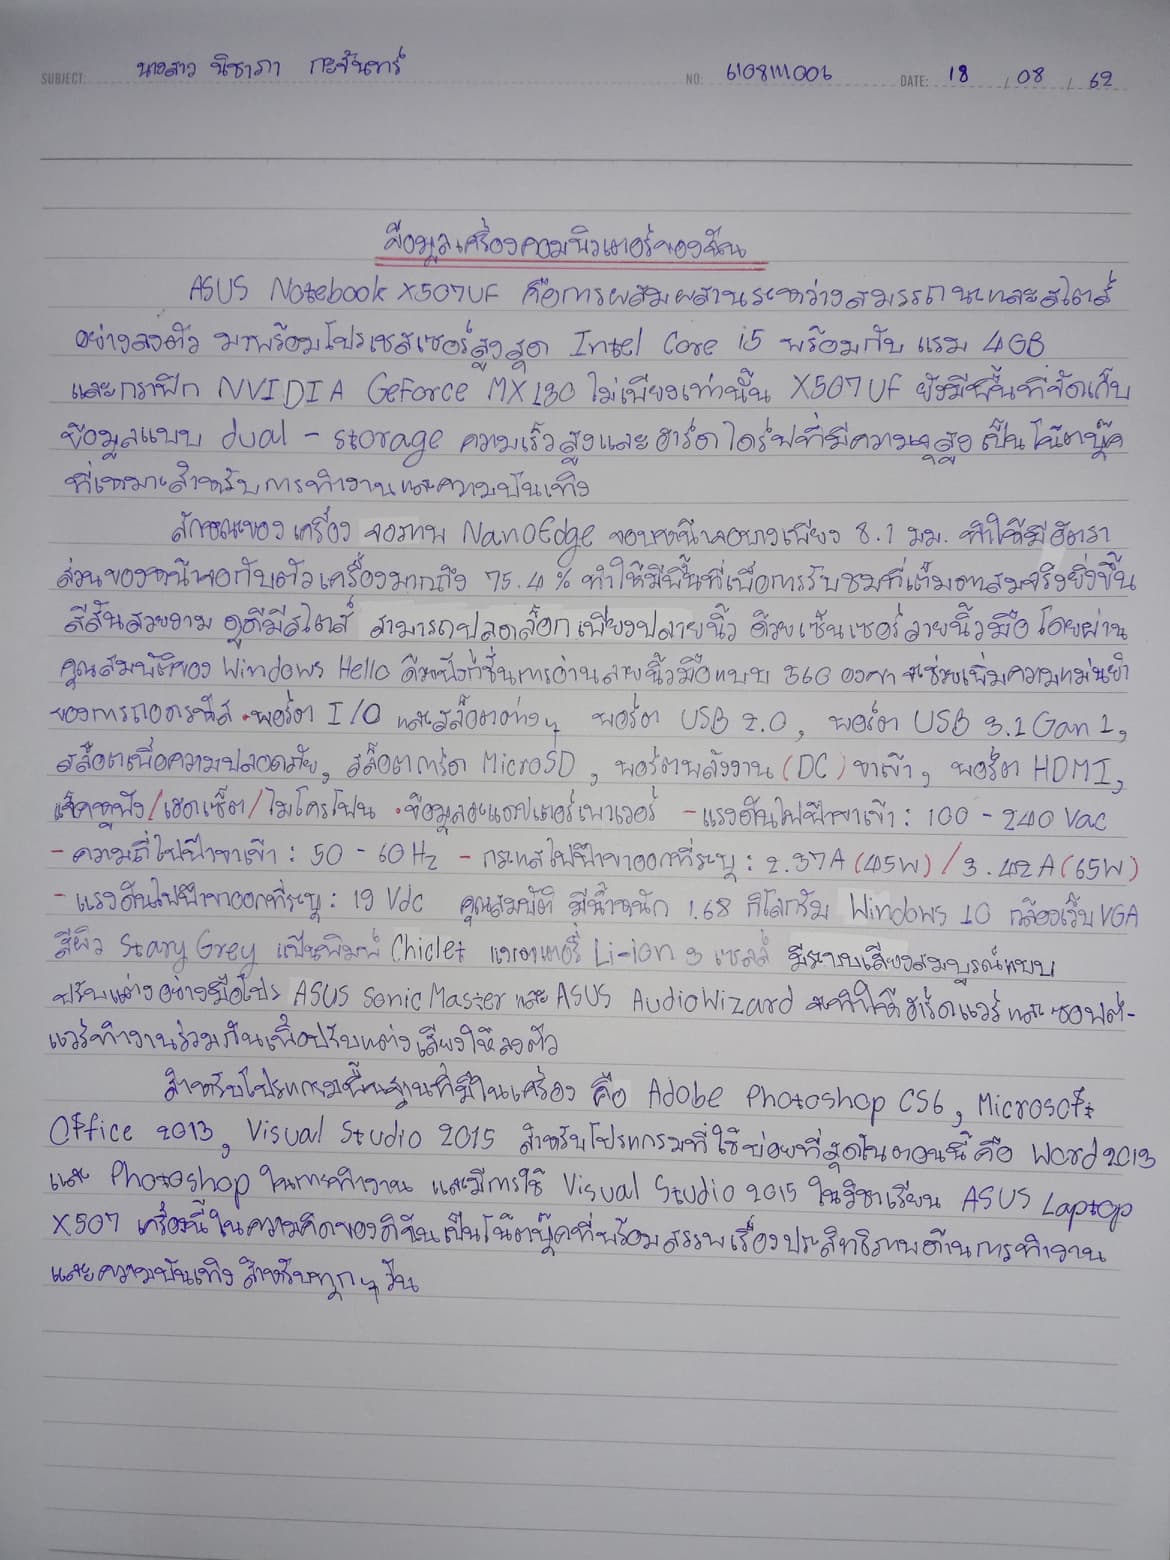 SUBJECT: นางสาว นิชาภา กะจันทร์ NO: 6108111006 DATE: 18 / 08 / 62
ข้อมูลเครื่องคอมพิวเตอร์ของฉัน
ASUS Notebook X507UF คือการผสมผสานระหว่างสมรรถนะและสไตล์
อย่างลงตัว มาพร้อมโปรเซสเซอร์สูงสุด Intel Core i5 พร้อมกับ แรม 4GB
และกราฟิก NVIDIA GeForce MX130 ไม่เพียงเท่านั้น X507UF ยังมีพื้นที่จัดเก็บ
ข้อมูลแบบ dual - storage ความเร็วสูงและ ฮาร์ดไดร์ฟที่มีความจุสูง เป็นโน๊ตบุ๊ค
ที่เหมาะสำหรับการทำงานและความบันเทิง
ลักษณะของ เครื่อง จอภาพ NanoEdge ขอบหน้าจอบางเพียง 8.1 มม. ทำให้มีอัตรา
ส่วนของหน้าจอกับตัวเครื่องมากถึง 75.4 % ทำให้มีพื้นที่เพื่อการรับชมที่เต็มตาสมจริงยิ่งขึ้น
สีสันสวยงาม ดูดีมีสไตล์ สามารถปลดล็อกเพียงปลายนิ้ว ด้วยเซ็นเซอร์ลายนิ้วมือ โดยผ่าน
คุณสมบัติของ Windows Hello ด้วยฟังก์ชั่นการอ่านลายนิ้วมือแบบ 360 องศา จะช่วยเพิ่มความแม่นยำ
ของการถอดรหัส • พอร์ต I/O และสล็อตต่างๆ พอร์ต USB 2.0, พอร์ต USB 3.1 Gan 1,
สล็อตเพื่อความปลอดภัย, สล็อตการ์ด MicroSD, พอร์ตพลังงาน (DC) ขาเข้า, พอร์ต HDMI,
แจ็คหูฟัง/เฮดเซ็ต/ไมโครโฟน • ข้อมูลอะแดปเตอร์เพาเวอร์ - แรงดันไฟฟ้าขาเข้า : 100 - 240 Vac
- ความถี่ไฟฟ้าขาเข้า : 50 - 60 Hz - กระแสไฟฟ้าขาออกที่ระบุ : 2.37A (45W) / 3.42A (65W)
- แรงดันไฟฟ้าขาออกที่ระบุ : 19 Vdc คุณสมบัติ มีน้ำหนัก 1.68 กิโลกรัม Windows 10 กล้องเว็บ VGA
สีผิว Stary Grey แป้นพิมพ์ Chiclet แบตเตอรี่ Li-ion 3 เซลล์ มีระบบเสียงสมบูรณ์แบบ
ปรับแต่งอย่างมือโปร ASUS SonicMaster และ ASUS AudioWizard จะทำให้ ฮาร์ดแวร์ และ ซอฟต์-
แวร์ทำงานร่วมกันเพื่อปรับแต่งเสียงให้ลงตัว
สำหรับโปรแกรมพื้นฐานที่มีในเครื่อง คือ Adobe Photoshop CS6, Microsoft
Office 2013, Visual Studio 2015 สำหรับโปรแกรมที่ใช้บ่อยที่สุดในตอนนี้ คือ Word 2013
และ Photoshop ในการทำงาน และมีการใช้ Visual Studio 2015 ในวิชาเรียน ASUS Laptop
X507 เครื่องนี้ ในความคิดของดิฉันเป็นโน๊ตบุ๊คที่พร้อมสรรพเรื่องประสิทธิภาพด้านการทำงาน
และความบันเทิง สำหรับทุกๆ วัน